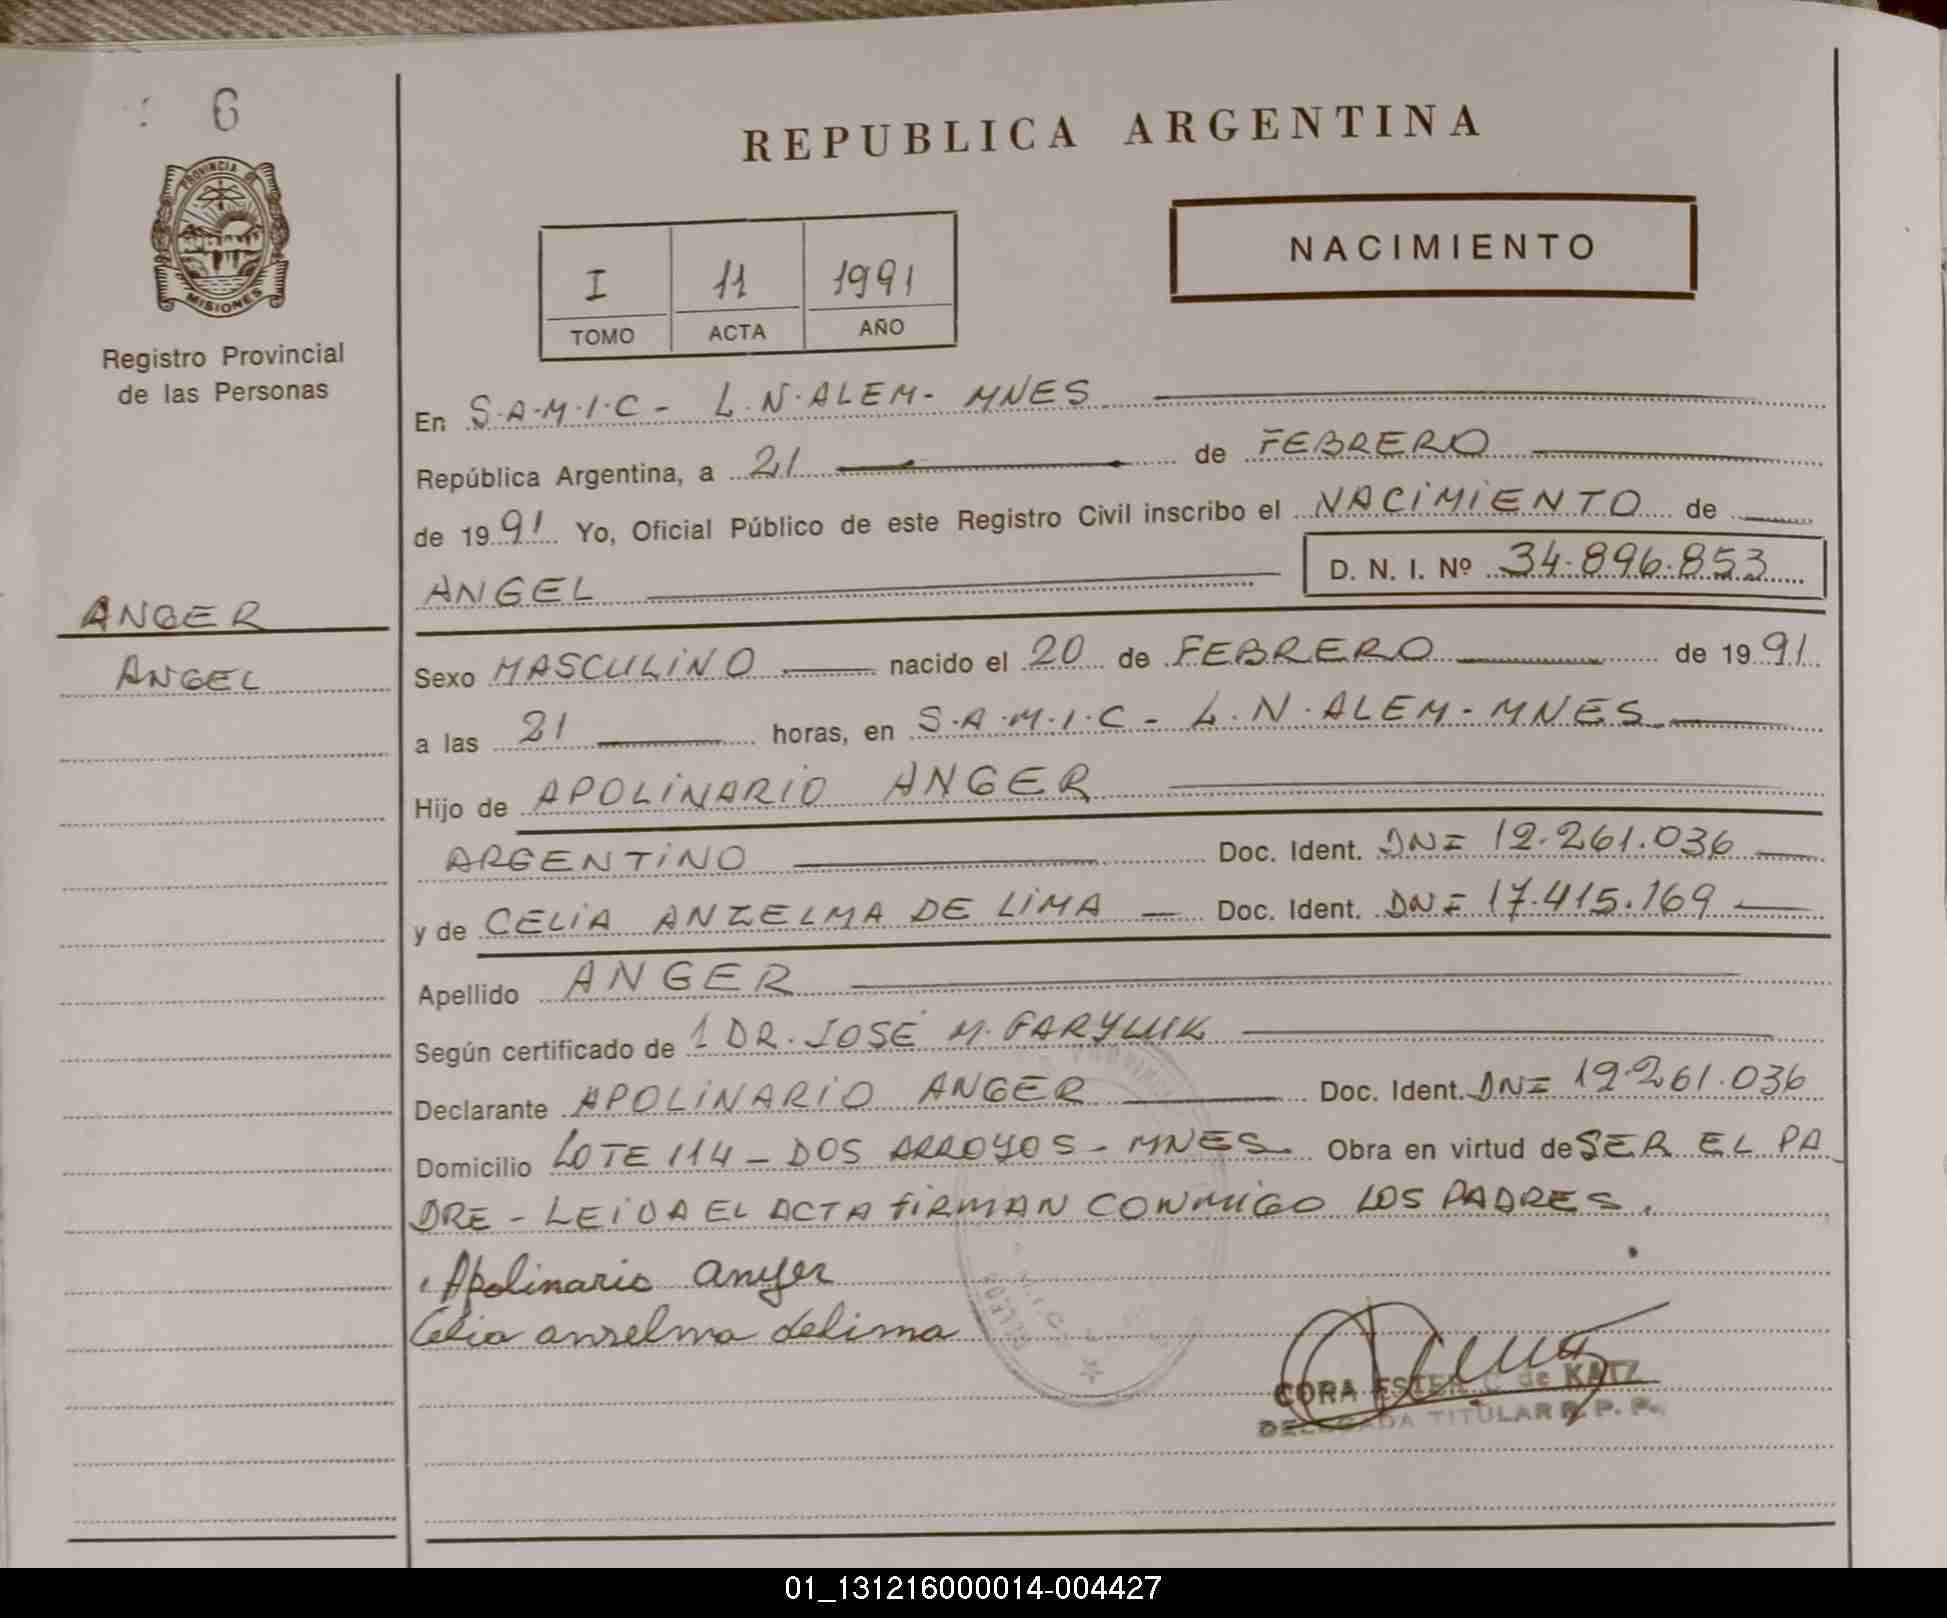 6
PROVINCIA DE
MISIONES
Registro Provincial
de las Personas
ANGER
ANGEL
REPUBLICA ARGENTINA
NACIMIENTO
I 11 1991
TOMO ACTA AÑO
En S.A.M.I.C - L.N.ALEM - MNES
República Argentina, a 21 de FEBRERO
de 1991 Yo, Oficial Público de este Registro Civil inscribo el NACIMIENTO de
ANGEL D. N. I. Nº 34.896.853
Sexo MASCULINO nacido el 20 de FEBRERO de 1991
a las 21 horas, en S.A.M.I.C - L.N.ALEM - MNES
Hijo de APOLINARIO ANGER
ARGENTINO Doc. Ident. DNI 12.261.036
y de CELIA ANZELMA DE LIMA Doc. Ident. DNI 17.415.169
Apellido ANGER
Según certificado de 1 DR. JOSE M.
Declarante APOLINARIO ANGER Doc. Ident. DNI 12.261.036
Domicilio LOTE 114 - DOS ARROYOS - MNES Obra en virtud de SER EL PA
DRE - LEIDA EL ACTA FIRMAN CONMIGO LOS PADRES.
Apolinario Anger
Celia anzelma delima
CORA ESTER C de KATZ
DELEGADA TITULAR R. P. P.
01_131216000014-004427